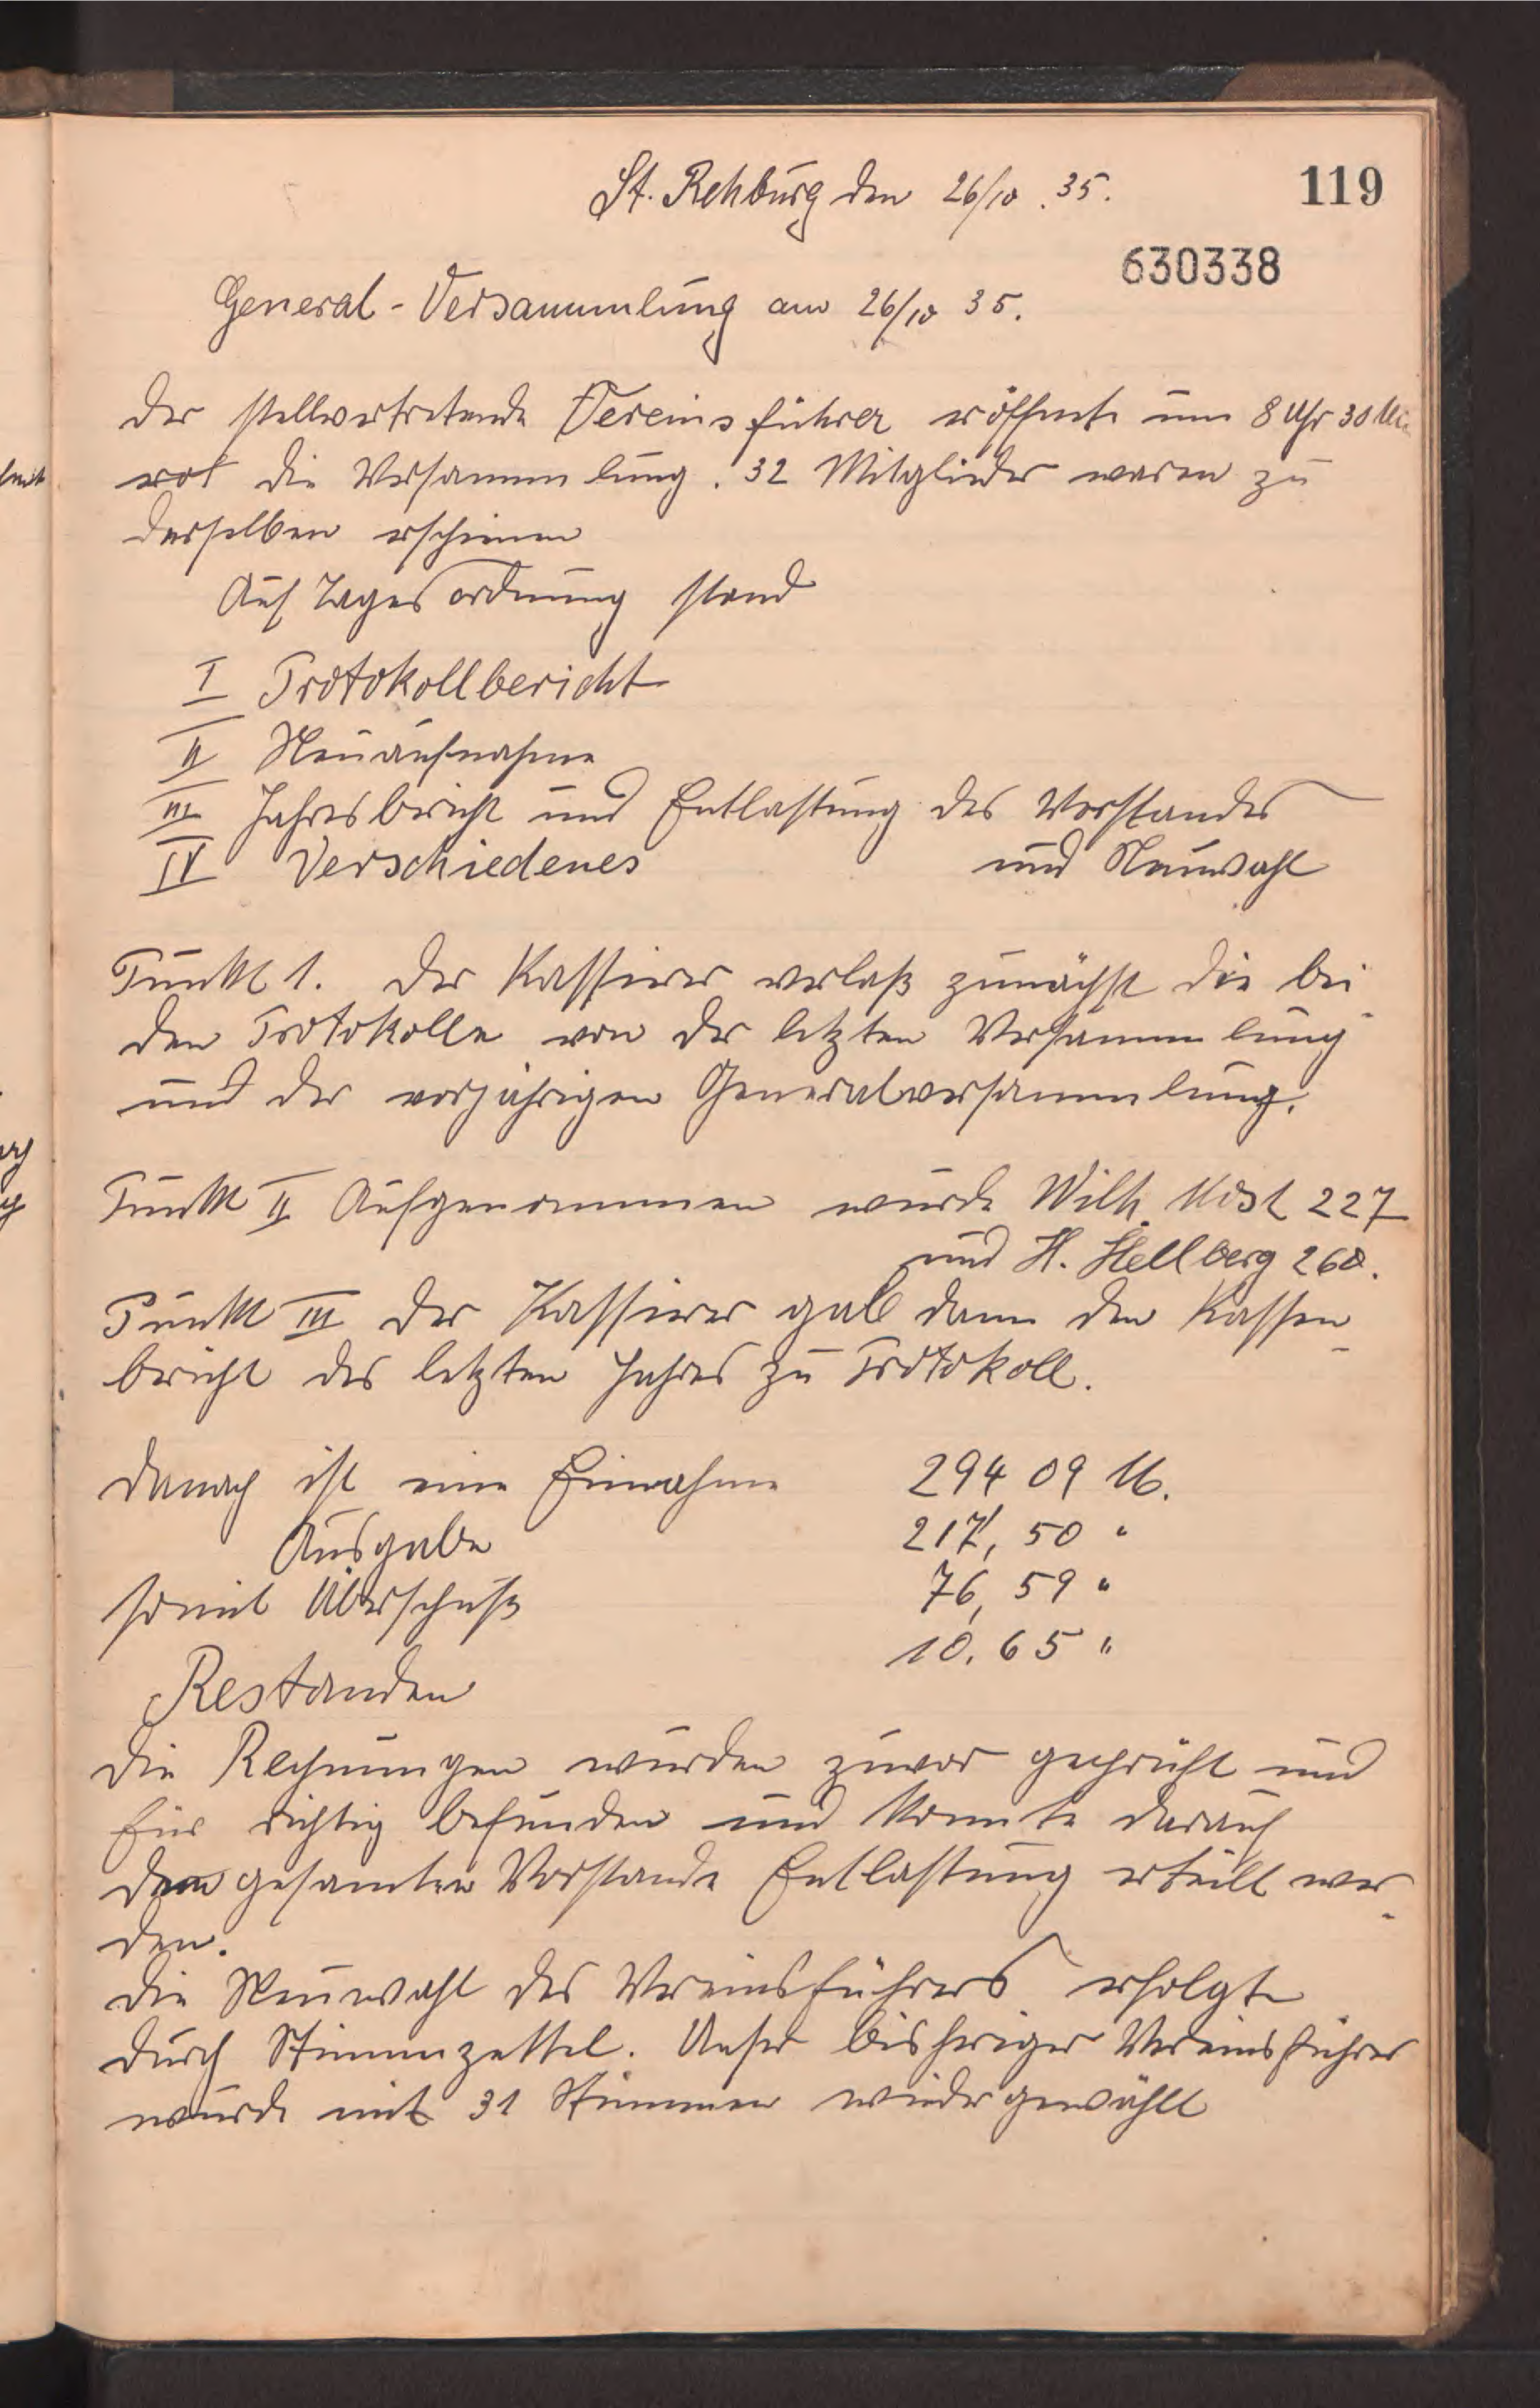 St. Rehburg den 26/10. 35.
119
630338
General-Versammlung am 26/10 35.
Der stellvertretende Vereinsführer eröffnete um 8 Uhr 30
die Versammlung. 32 Mitglieder waren zu
derselben erschienen
Auf Tagesordnung stand
I Protokollbericht
II Neuaufnahme
III Jahresbericht und Entlastung des Vorstandes
und Neuwahl
IV Verschiedenes
Punkt 1. Der Kassierer verlaß zunächst die bei-
den Protokolle von der letzten Versammlung
und der vorjährigen Generalversammlung.
Punkt II Aufgenommen wurde Wilh. 227
und H. Hellberg 268.
Punkt III Der Kassierer gab dann den Kassen-
bericht des letzten Jahres zu Protokoll.
Danach ist eine Einnahme 294 09 M.
Ausgabe 217, 50 "
somit Überschuß 76, 59 "
10. 65 "
Restanden
Die Rechnungen wurden zuvor geprüft und
für richtig befunden und konnte darauf
dem gesamten Vorstande Entlastung erteilt wer-
den.
Die Neuwahl des Vereinsführers erfolgte
durch Stimmzettel. Unser bisheriger Vereinsführer
wurde mit 31 Stimmen wiedergewählt